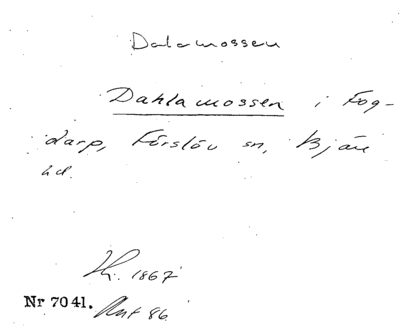 Dalamossen
Dahlamossen i Fog-
darp, Förslöv sn, Bjäre
hd.
1867
Nr 7041. Ant 86